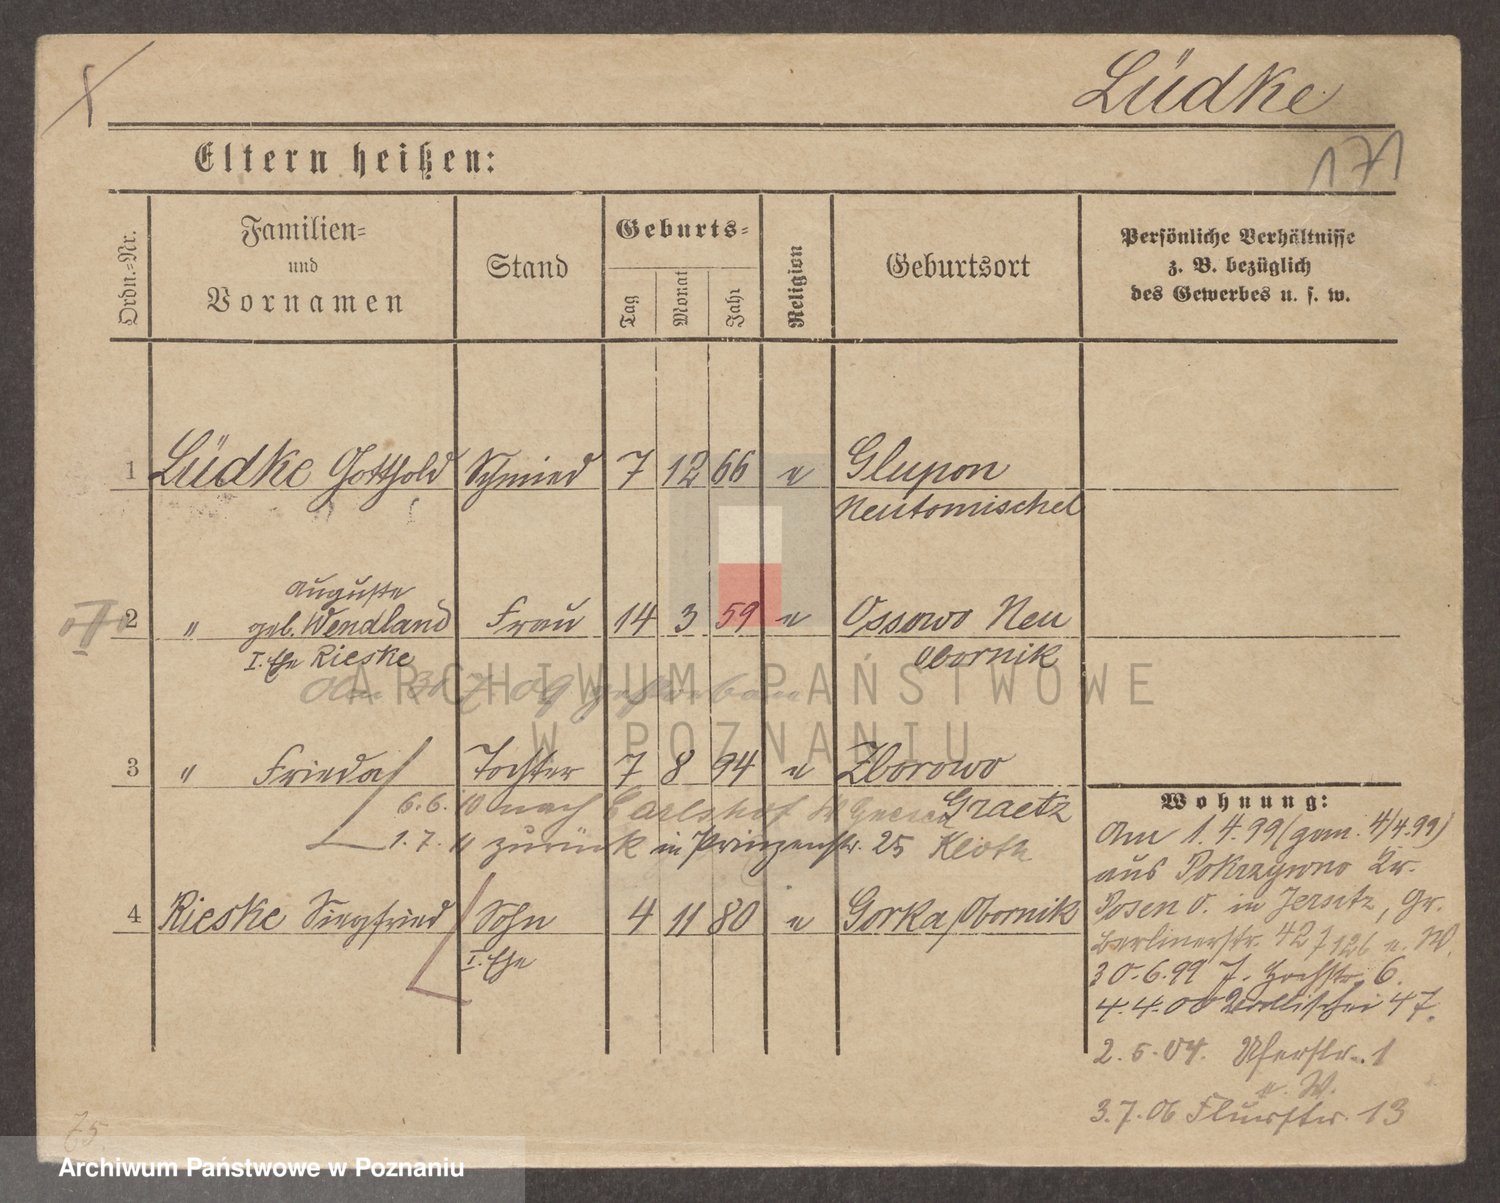 Lüdke
171
Eltern heißen:
Ordn.=Nr.
Familien=
und
Vornamen
Stand
Geburts=
Tag
Monat
Jahr
Religion
Geburtsort
Persönliche Verhältnisse
z. B. bezüglich
des Gewerbes u. s. w.
1 Lüdke Gotthold Schmied 7 12 66 e Glupon
Neutomischel
Auguste
2 " geb. Wendland Frau 14 3 59 e Ossowo Neu
I. Ehe Rieske Obornik
Am 30 7 09 gestorben
ARCHIWUM PAŃSTWOWE
W POZNANIU
3 " Frieda Tochter 7 8 94 e Zborowo
Graetz
6.6. 10 nach Carlshof
1.7. " zurück in Prinzenstr. 25 Klotz
4 Rieske Siegfried Sohn 4 11 80 e Gorka, Obornik
I. Ehe
Wohnung:
Am 1.4.99 (gem. 4/4.99)
aus Pokrzywno Kr.
Posen O. in Jersitz, Gr.
Berlinerstr. 42
30.6.99 Hochstr. 6.
4.4.00 Wallischei 47.
2.5.04. Uferstr. 1
e. W.
3.7.06 Flurstr. 13
75
Archiwum Państwowe w Poznaniu